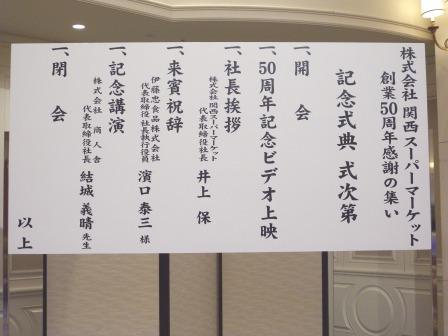 株式会社 関西スーパーマーケット
創業50周年感謝の集い
記念式典 式次第
一、開 会
一、50周年記念ビデオ上映
一、社長挨拶
株式会社 関西スーパーマーケット
代表取締役社長 井上 保
一、来賓祝辞
伊藤忠食品株式会社
代表取締役社長執行役員 濱口 泰三 様
一、記念講演
株式会社 商人舎
代表取締役社長 結城 義晴 先生
一、閉 会
以 上